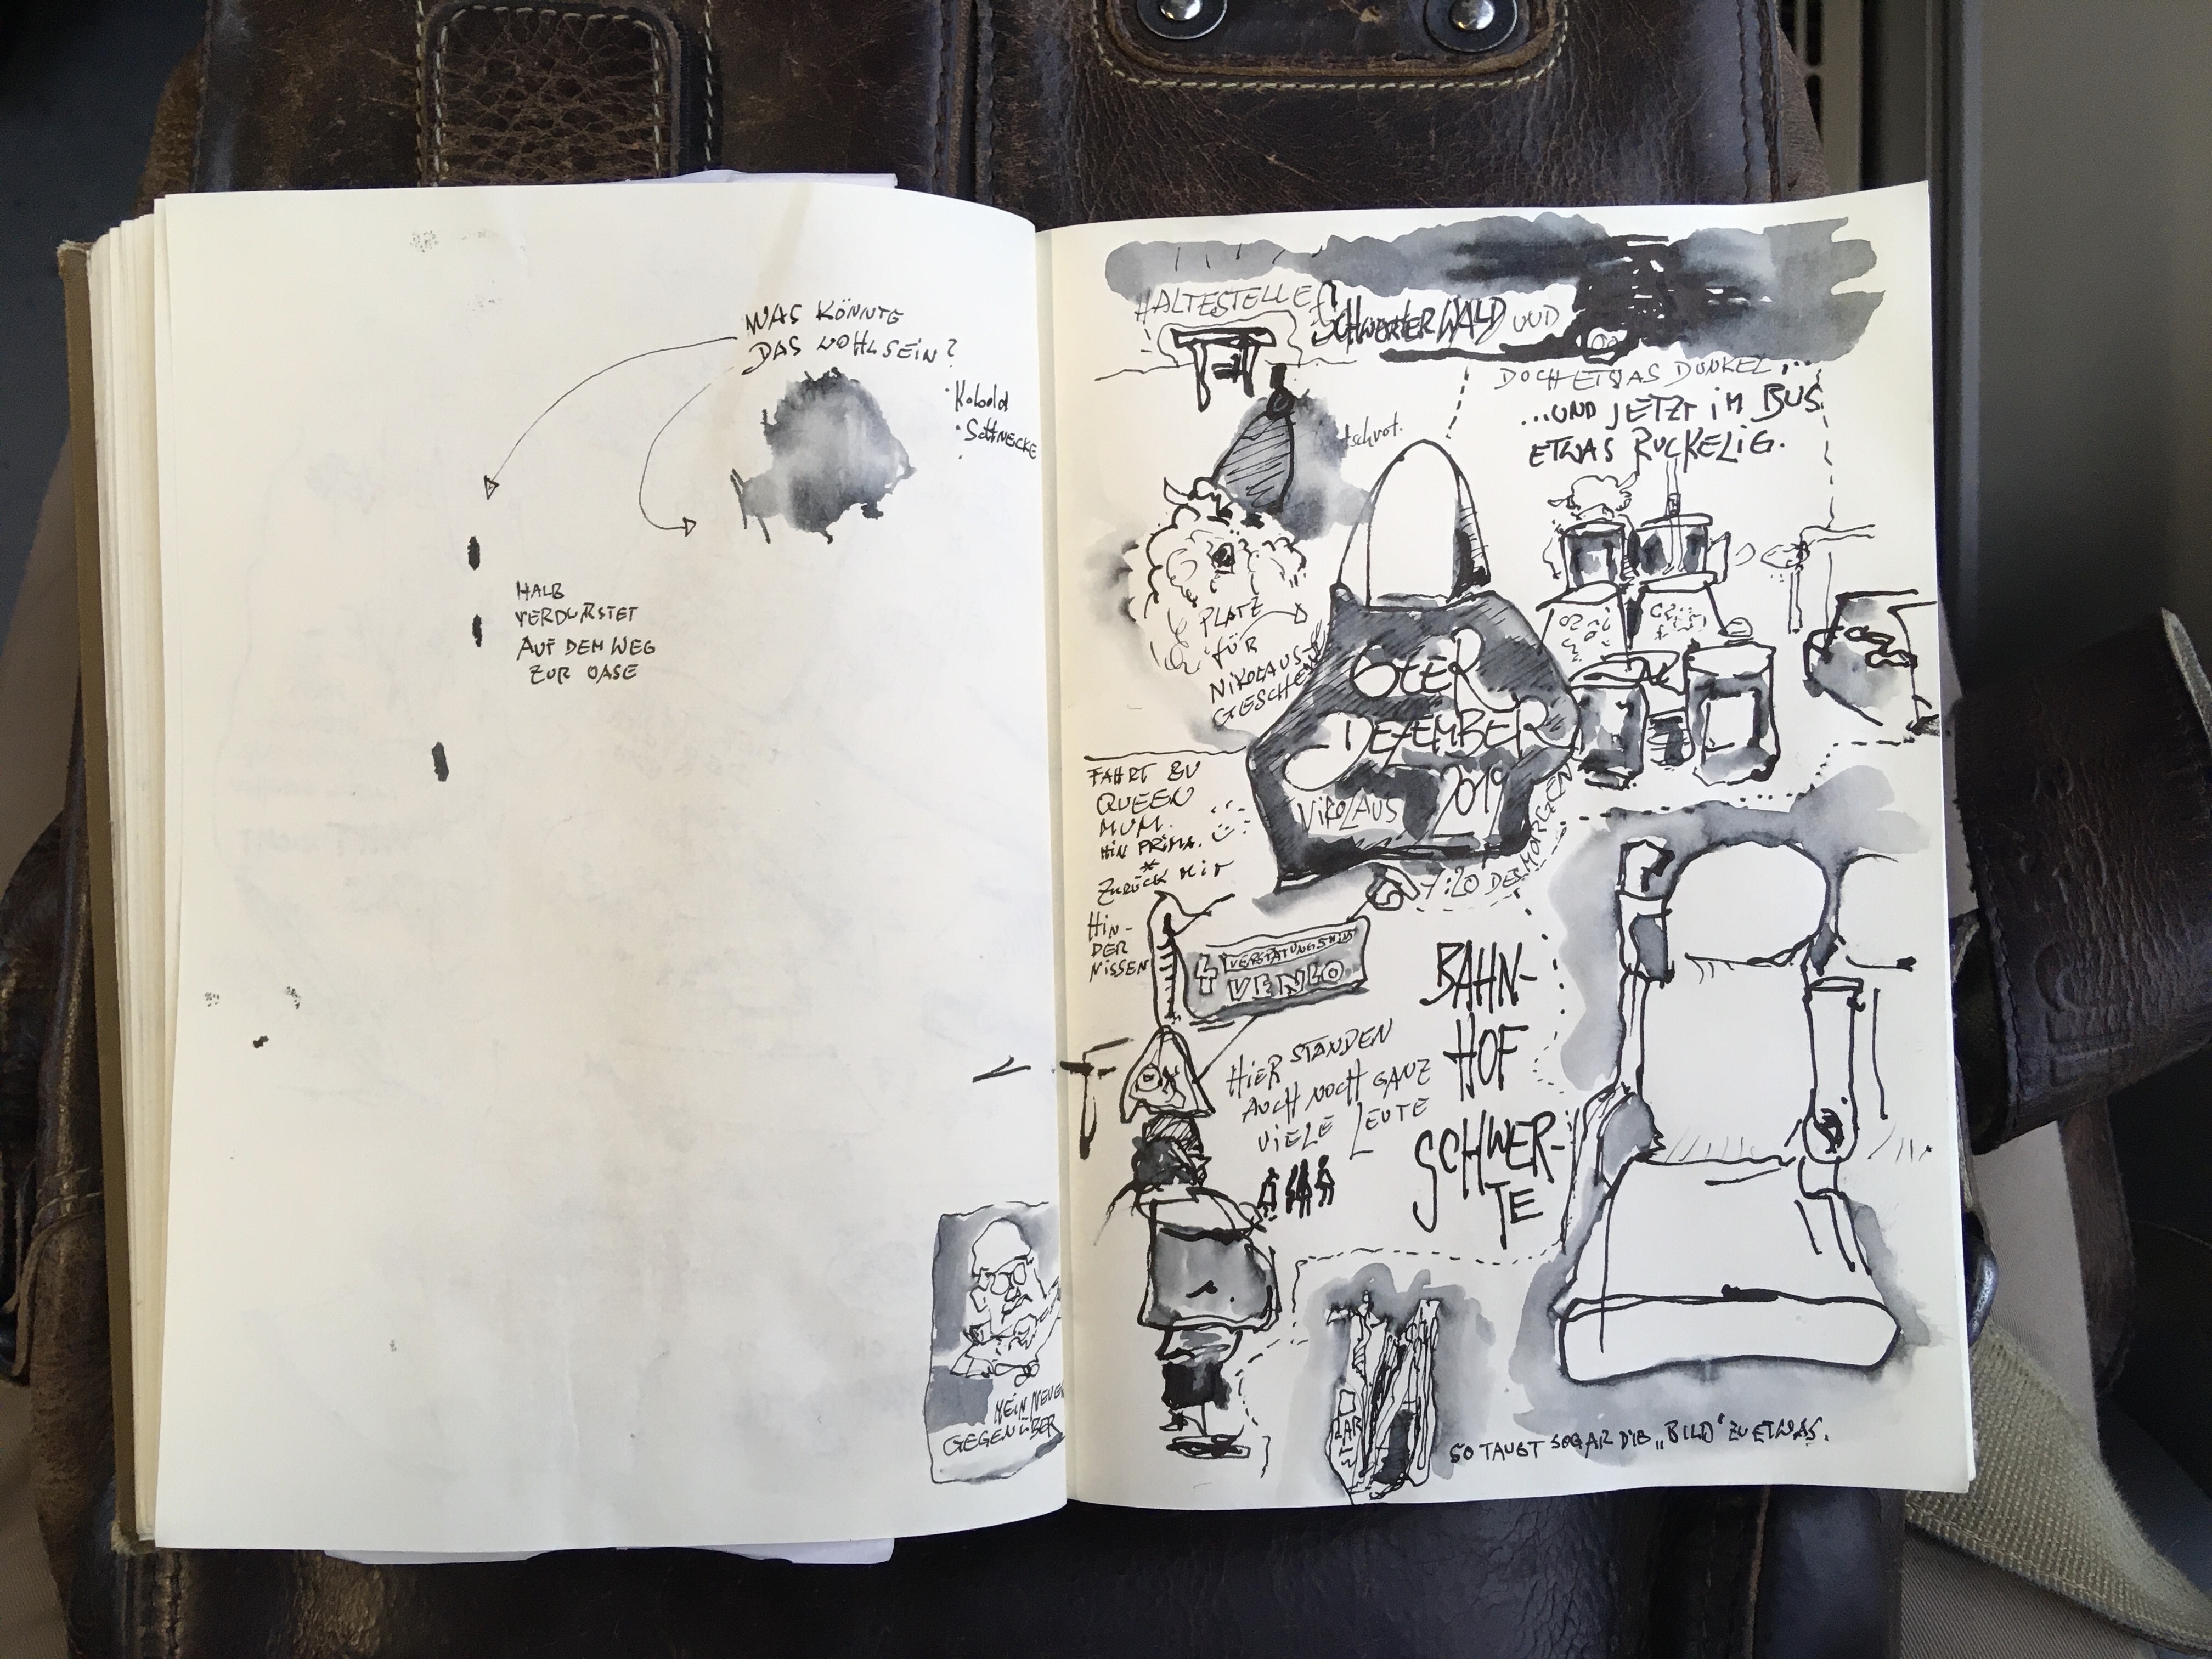 WAS KÖNNTE
DAS WOHL SEIN?
· Kobold
· SCHNECKE
HALB
VERDURSTET
AUF DEM WEG
ZUR OASE
MEIN NEUER
GEGENÜBER
HALTESTELLE
SCHWERTER WALD UND
DOCH ETWAS DUNKEL...
...UND JETZT IM BUS
ETWAS RUCKELIG.
PLATZ
FÜR
NIKOLAUS-
GESCHENK
6TER
DEZEMBER
2019
NIKOLAUS
FAHRT ZU
QUEEN
MUM.
HIN PRIMA.
*
ZURÜCK MIT
HIN-
DER
NISSEN
7:20 DES MORGENS
4
VENLO
HIER STANDEN
AUCH NOCH GANZ
VIELE LEUTE
BAHN-
HOF
SCHWER-
TE
SO TAUGT SOGAR DIE „BILD“ ZU ETWAS.